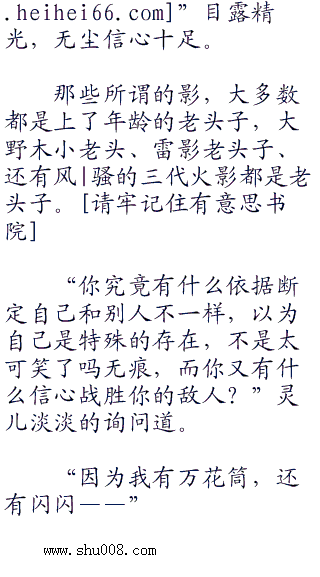 .heihei66.com]”目露精
光，无尘信心十足。
那些所谓的影，大多数
都是上了年龄的老头子，大
野木小老头、雷影老头子、
还有风|骚的三代火影都是老
头子。[请牢记住有意思书
院]
“你究竟有什么依据断
定自己和别人不一样，以为
自己是特殊的存在，不是太
可笑了吗无痕，而你又有什
么信心战胜你的敌人？”灵
儿淡淡的询问道。
“因为我有万花筒，还
有闪闪——”
www.shu008.com